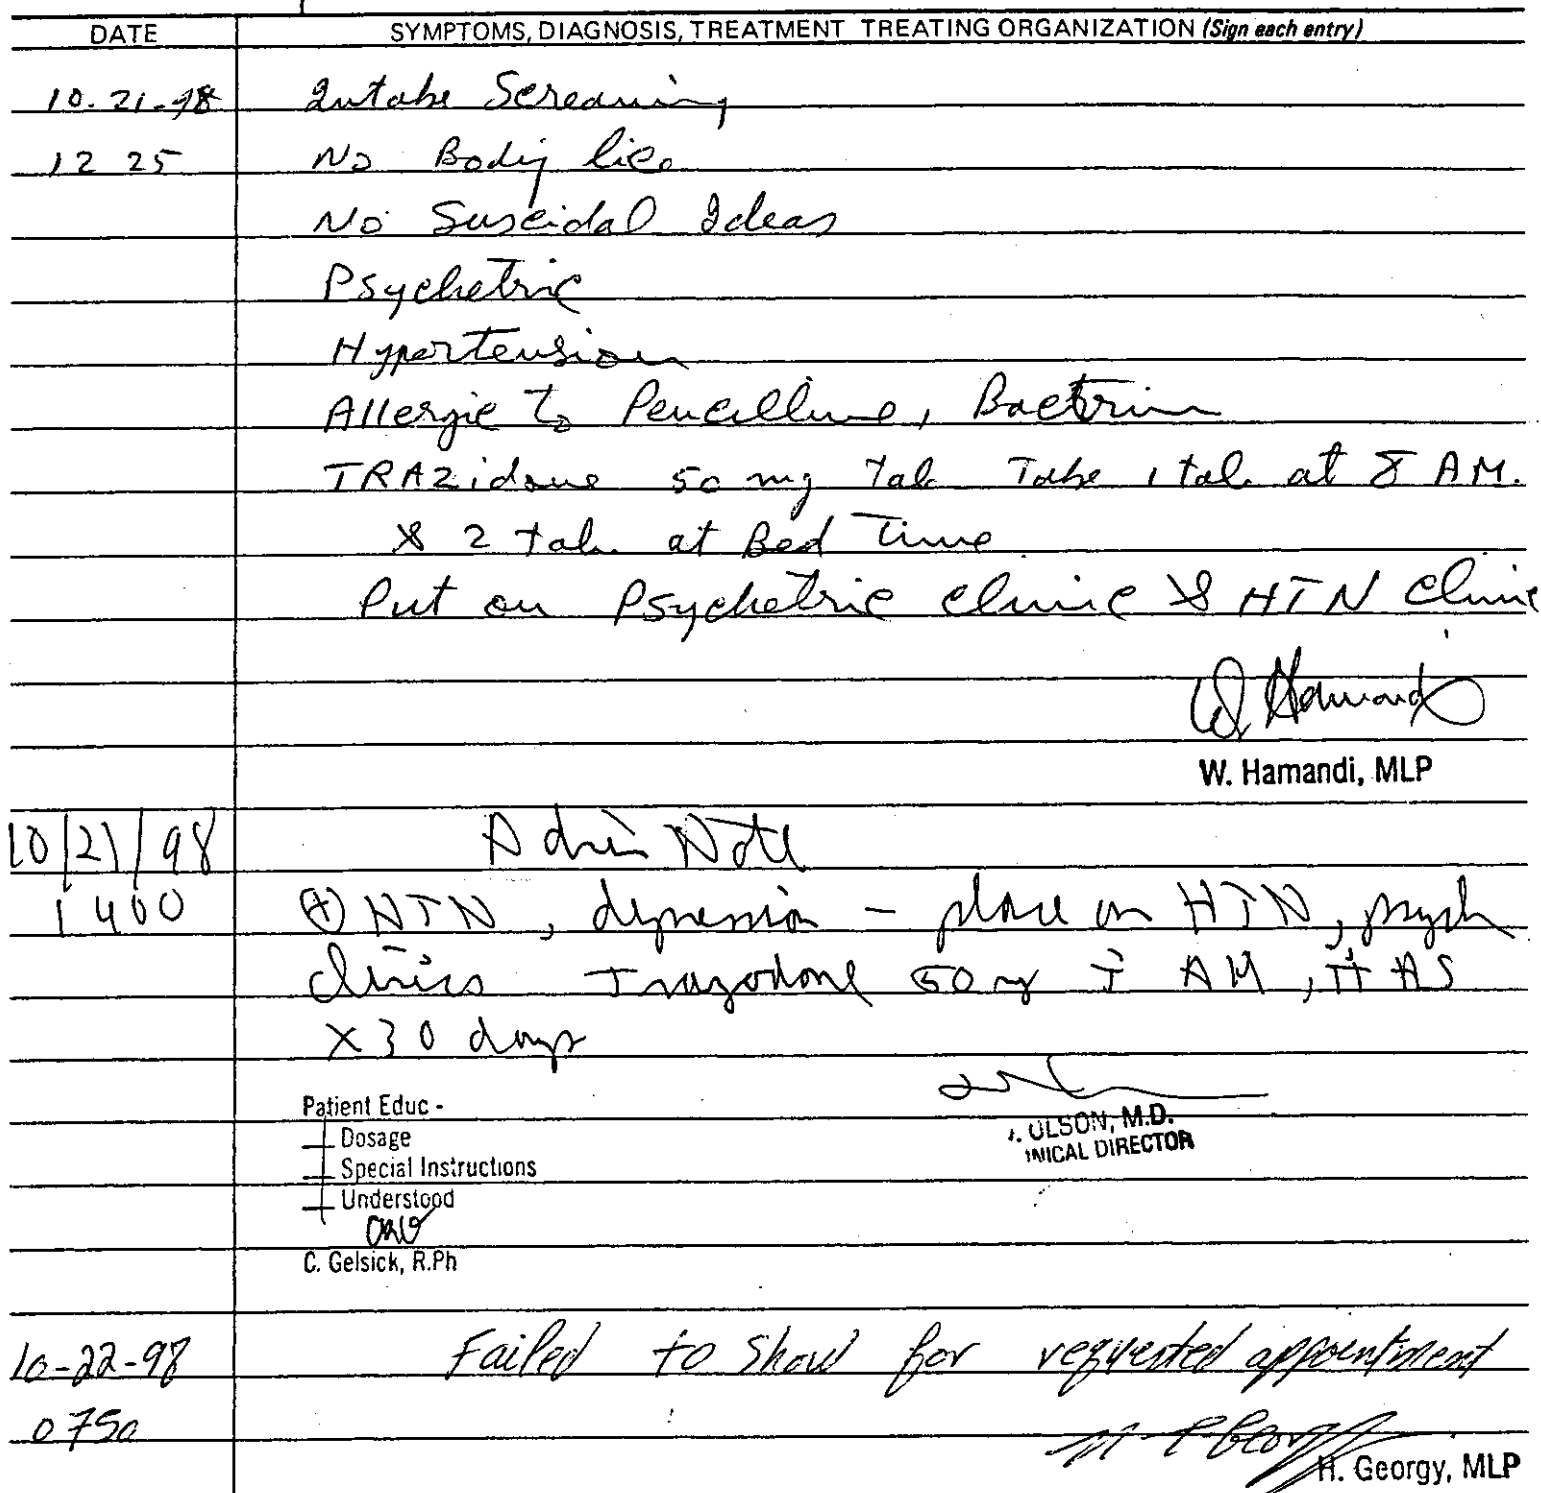 DATE SYMPTOMS, DIAGNOSIS, TREATMENT TREATING ORGANIZATION (Sign each entry)
10.21.98 Intake Screaning
12 25 No Body lice
No Suseidal Ideas
Psychetric
Hypertension
Allergic to Pencilline, Bactrim
TRAZidone 50 mg Tab Take 1 tab. at 8 AM.
& 2 tab. at Bed Time
Put on Psychetric clinic & HTN clinic
W. Hamandi, MLP
10/21/98 Admin Note
1400 ⊕ HTN, depression - place on HTN, psych
clinics Trazodone 50 mg i AM, ii HS
x 30 days
Patient Educ -
Dosage
Special Instructions
Understood
C. Gelsick, R.Ph
. OLSON, M.D.
INICAL DIRECTOR
10-22-98 Failed to show for requested appointment
0750
H. Georgy, MLP